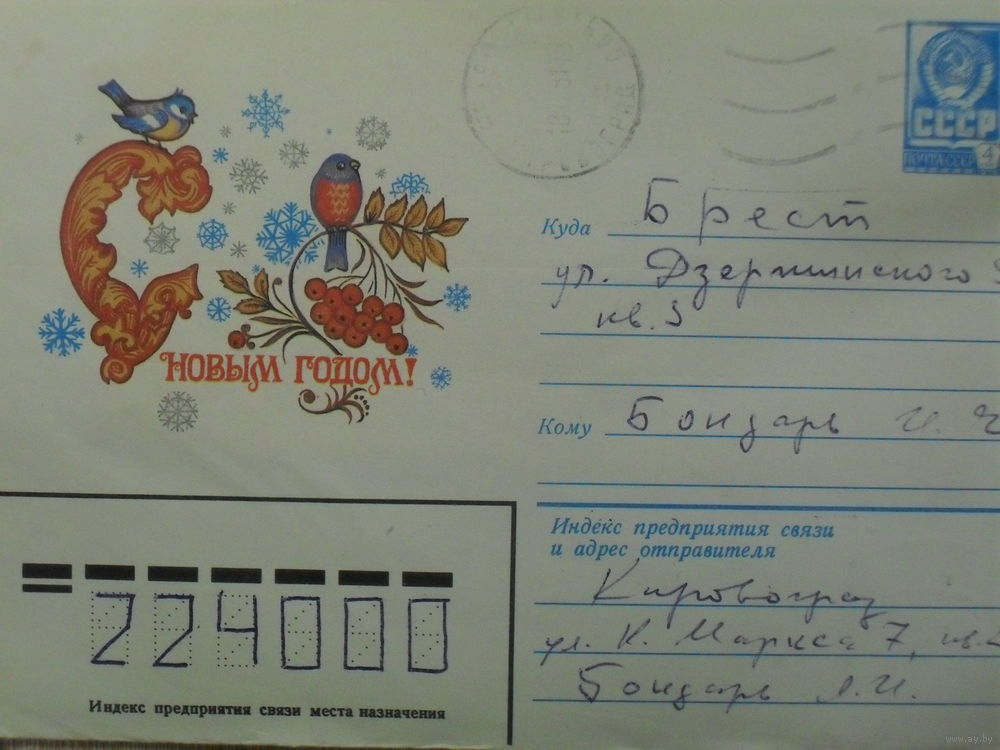 С НОВЫМ ГОДОМ!
СССР
ПОЧТА СССР 4
Куда Брест
ул. Дзержинского
кв. 3
Кому Бондарь И. Ч
Индекс предприятия связи
и адрес отправителя
Кировоград
ул. К. Маркса 7, кв.
Бондарь Л.И.
224000
Индекс предприятия связи места назначения
www.ay.by